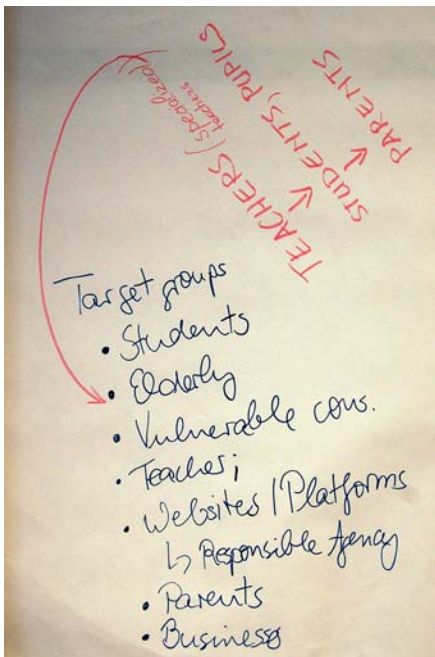 TEACHERS (specialized
teachers
↓
STUDENTS, PUPILS
↓
PARENTS
Target groups
• Students
• Elderly
• Vulnerable cons.
• Teacher;
• Websites / Platforms
↳ Responsible Agency
• Parents
• Business